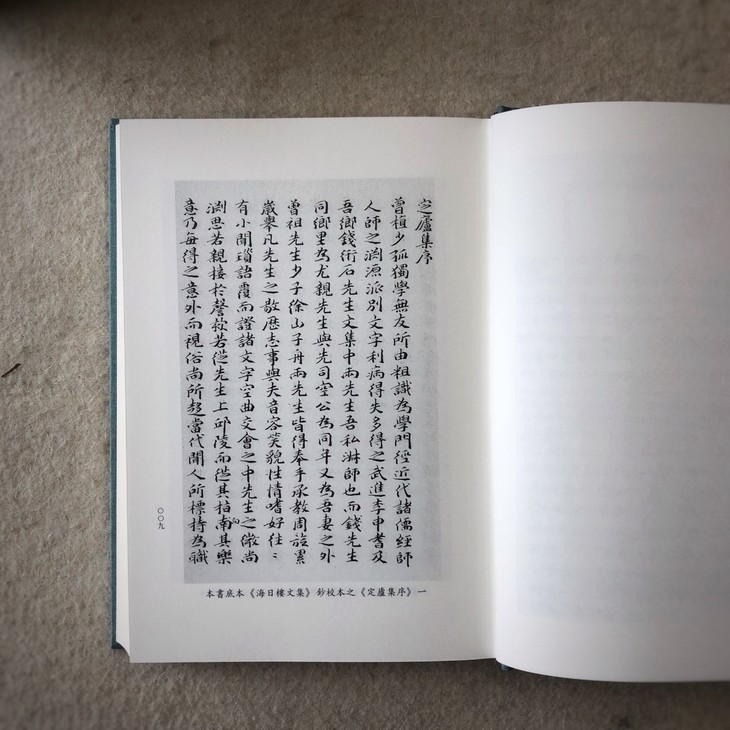 定廬集序
曾植少孤獨學無友所由粗識為學門徑近代諸儒經師
人師之淵源派別文字利病得失多得之武進李申耆及
吾鄉錢衎石先生文集中兩先生吾私淋師也而錢先生
同鄉里為尤親先生與先司空公為同年又為吾妻之外
曾祖先生少子徐山子舟兩先生皆得奉手承教周旋累
歲舉凡先生之敭歷志事與夫音容笑貌性情嗜好往〻
有小聞瑣語霞而證諸文字空曲交會之中先生之微尚
淵思若親接於謦欬若從先生上邱陵而從其指南其樂
意乃每得之意外而視俗尚所趨當代聞人所標持為職
〇〇九
本書底本《海日樓文集》鈔校本之《定廬集序》一